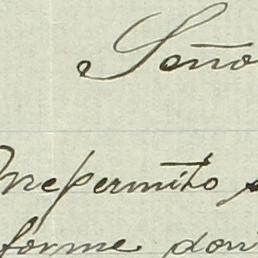 Seño
Me permito
forme don